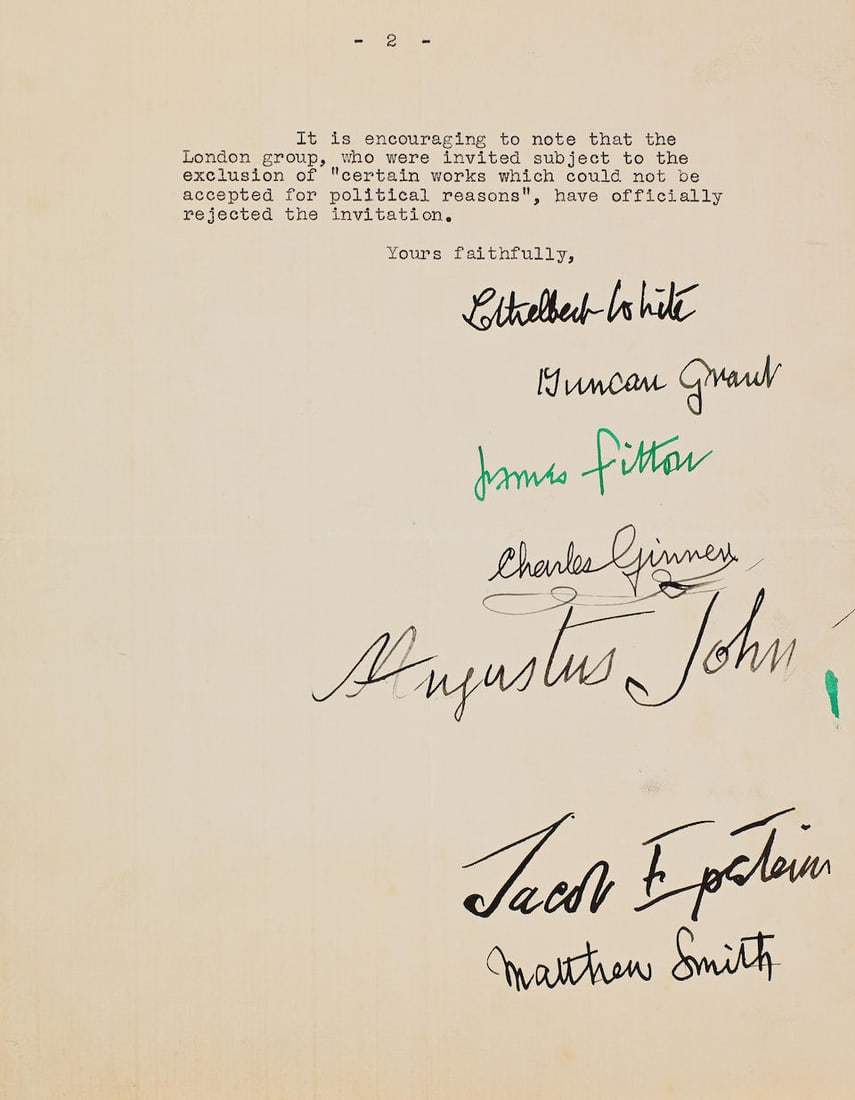 - 2 -
It is encouraging to note that the
London group, who were invited subject to the
exclusion of "certain works which could not be
accepted for political reasons", have officially
rejected the invitation.
Yours faithfully,
Ethelbert White
Duncan Grant
James Fitton
Charles Ginner
Augustus John
Jacob Epstein
Matthew Smith